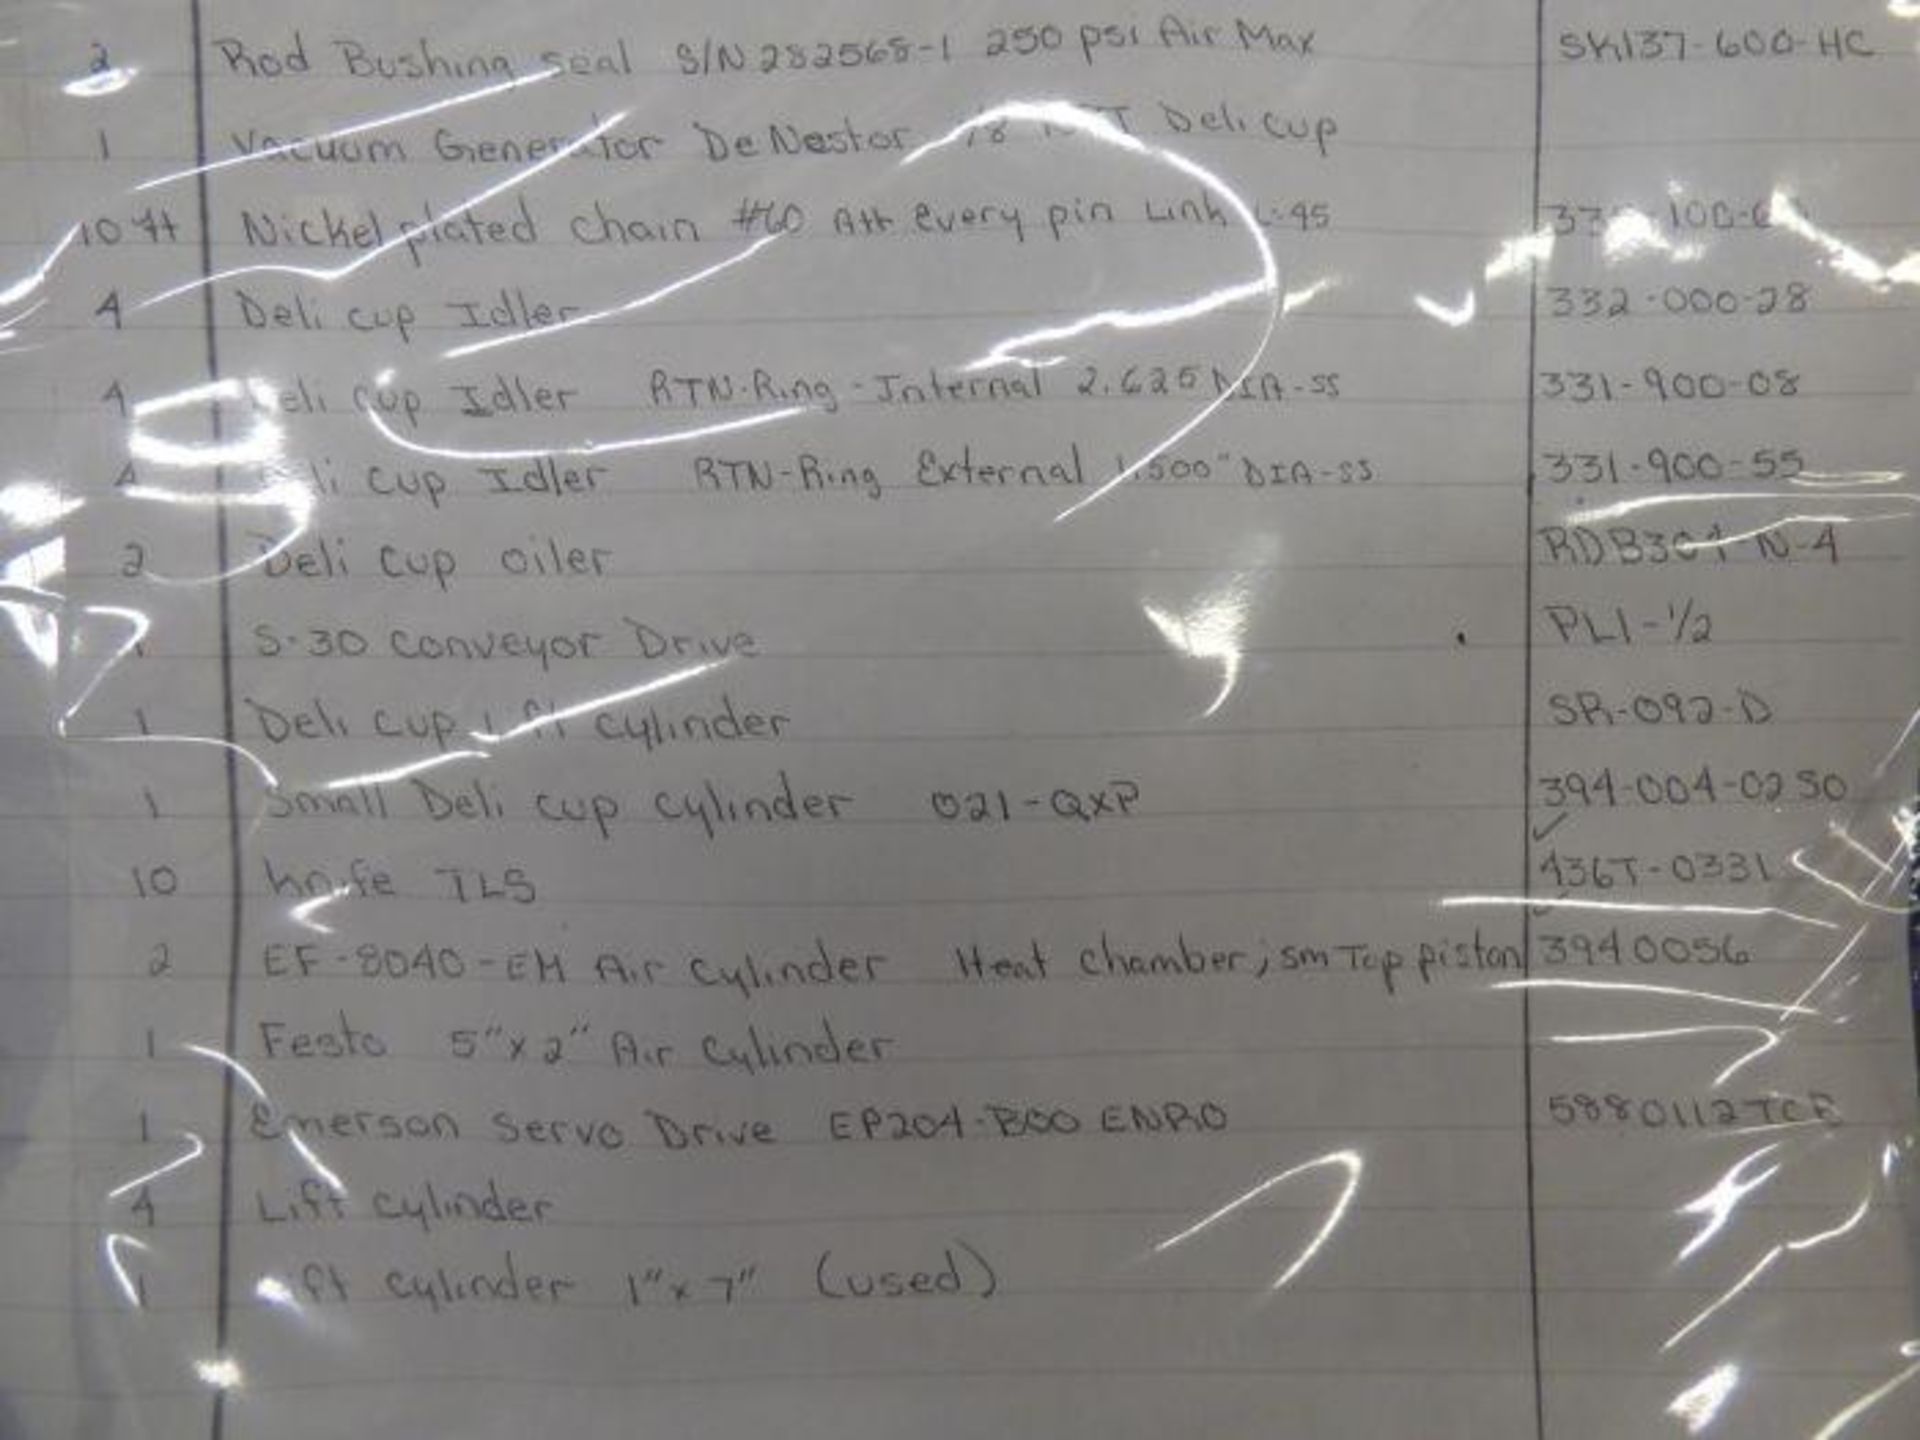 2 Rod Bushing seal S/N 282568-1 250 psi Air Max SK137-600-HC
1 Vacuum Generator DeNestor Deli cup
10 ft Nickel plated chain #60 Att every pin Link L-95
4 Deli cup Idler 332-000-28
4 Deli cup Idler RTN-Ring-Internal 2.625 DIA-SS 331-900-08
4 Deli cup Idler RTN-Ring External 1.500" DIA-SS 331-900-55
2 Deli cup oiler RDB304-N-4
S-30 Conveyor Drive PL1-1/2
1 Deli cup Lift cylinder SR-092-D
1 Small Deli cup cylinder 021-QXP 394-004-0250
10 knife TLS 436T-0331
2 EF-8040-EH Air cylinder Heat chamber; sm Top piston 3940056
1 Festo 5"x2" Air Cylinder
1 Emerson Servo Drive EP204-B00 ENR0
4 Lift cylinder
1 Lift cylinder 1"x7" (used)